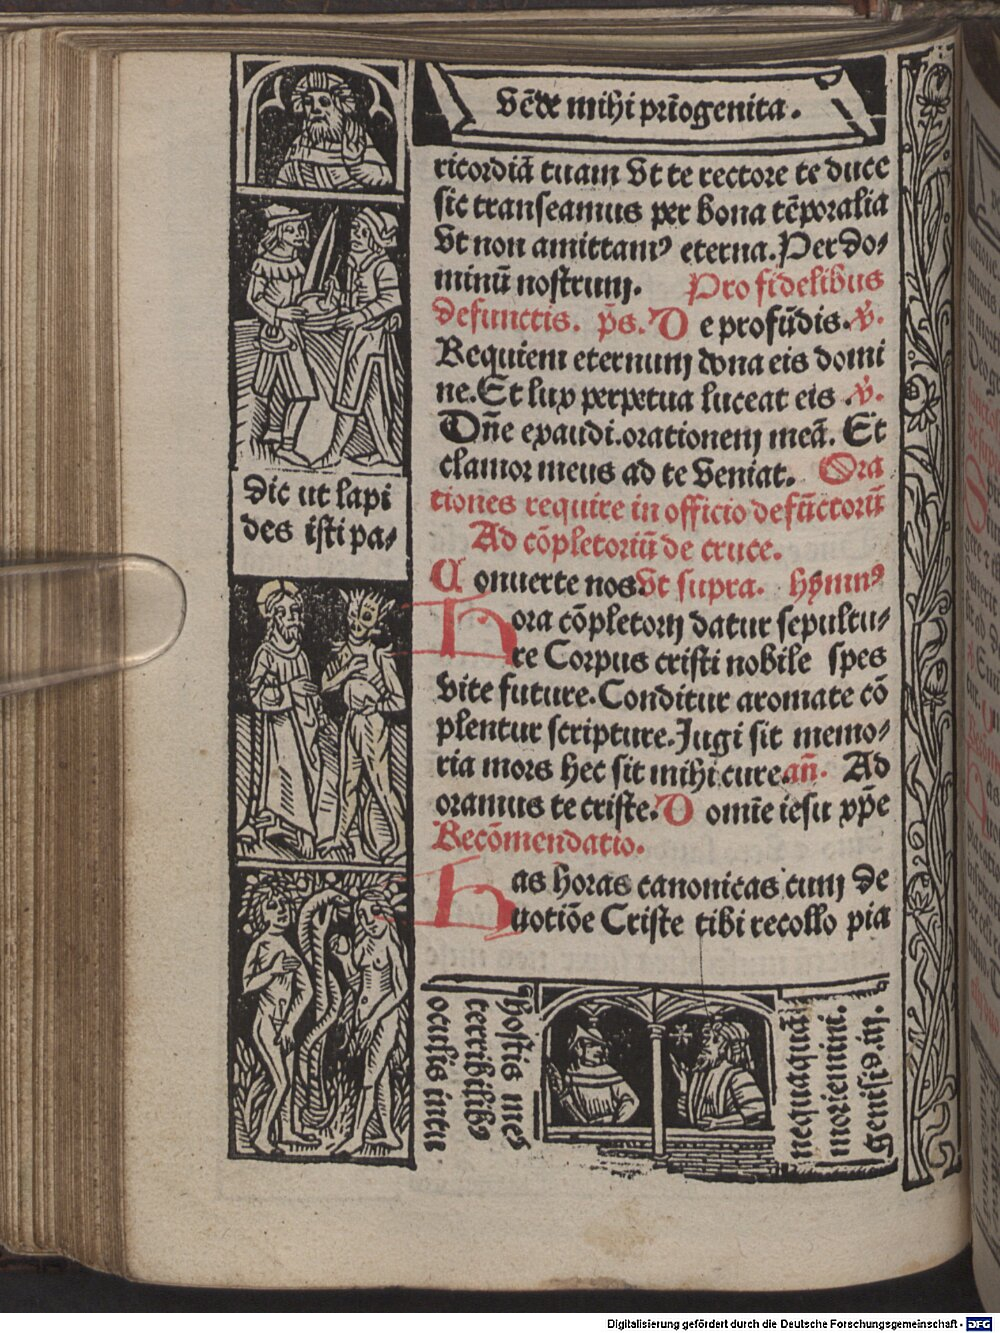 Vēde mihi prīogenita.
ricordiā tuam Vt te rectore te duce
sic transeamus per bona tēporalia
Vt non amittamꝰ eterna. Per do⸗
minū nostrum. Pro fidelibus
defunctis. p̄s. D e profūdis. v̄.
Requiem eternum dona eis domi
ne. Et lux perpetua luceat eis .v̄.
Dn̄e exaudi.orationem meā. Et
clamor meus ad te Veniat. Ora
tiones require in officio defūctorū
Ad cōpletoriū de cruce.
C onuerte nos Vt supra. hymnꝰ
H ora cōpletorij datur sepultu⸗
re Corpus cristi nobile spes
Vite future. Conditur aromate cō
plentur scripture. Jugi sit memo⸗
ria mors hec sit mihi cure. añ. Ad
oramus te criste. D omīe iesu xp̄e
Recōmendatio.
H as horas canonicas cum de
uotiōe Criste tibi recollo pia
dic ut lapi
des isti pa⸗
Hostis meꝰ
terribilibꝰ
oculis intu
nequaquā
moriemini.
genisis.iij.
Digitalisierung gefördert durch die Deutsche Forschungsgemeinschaft - DFG